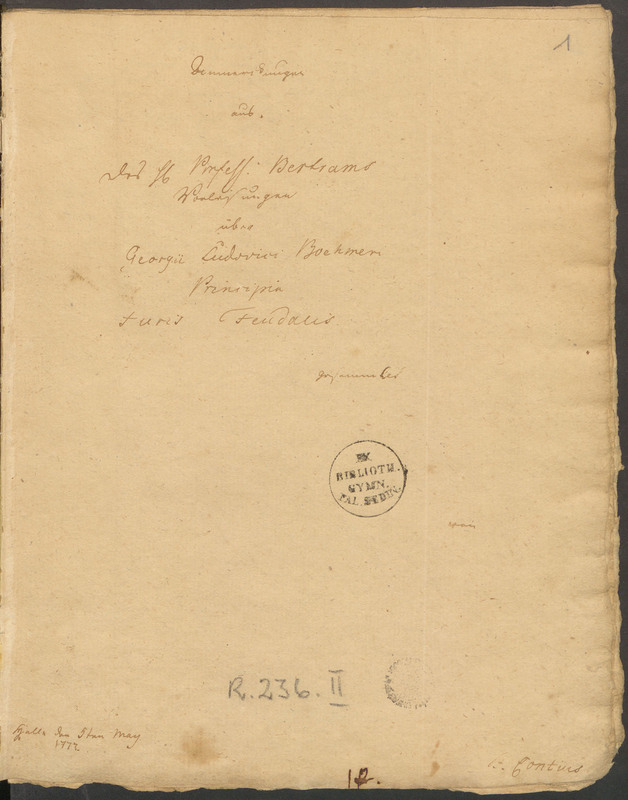 1
Bemerkungen
aus.
des H Profess: Bertrams
Vorlesungen
über
Georgii Ludovici Boehmeri
Principia
Juris Feudalis
EX
BIBLIOTH.
GYMN.
PAL. SEDIN.
R.236.II
Halle den 5ten May
1772
Contius
12.